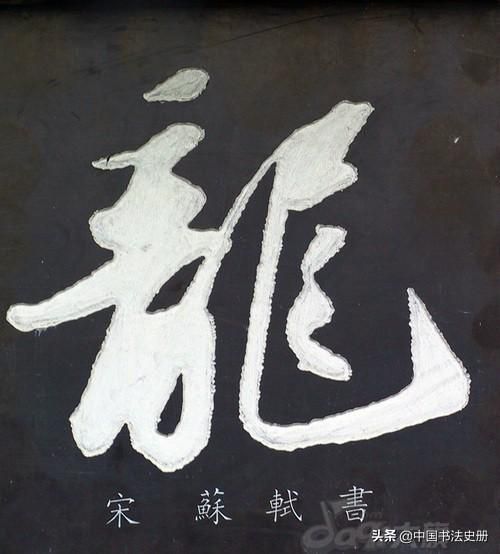 龍
宋 蘇 軾 書
头条 @中国书法史册